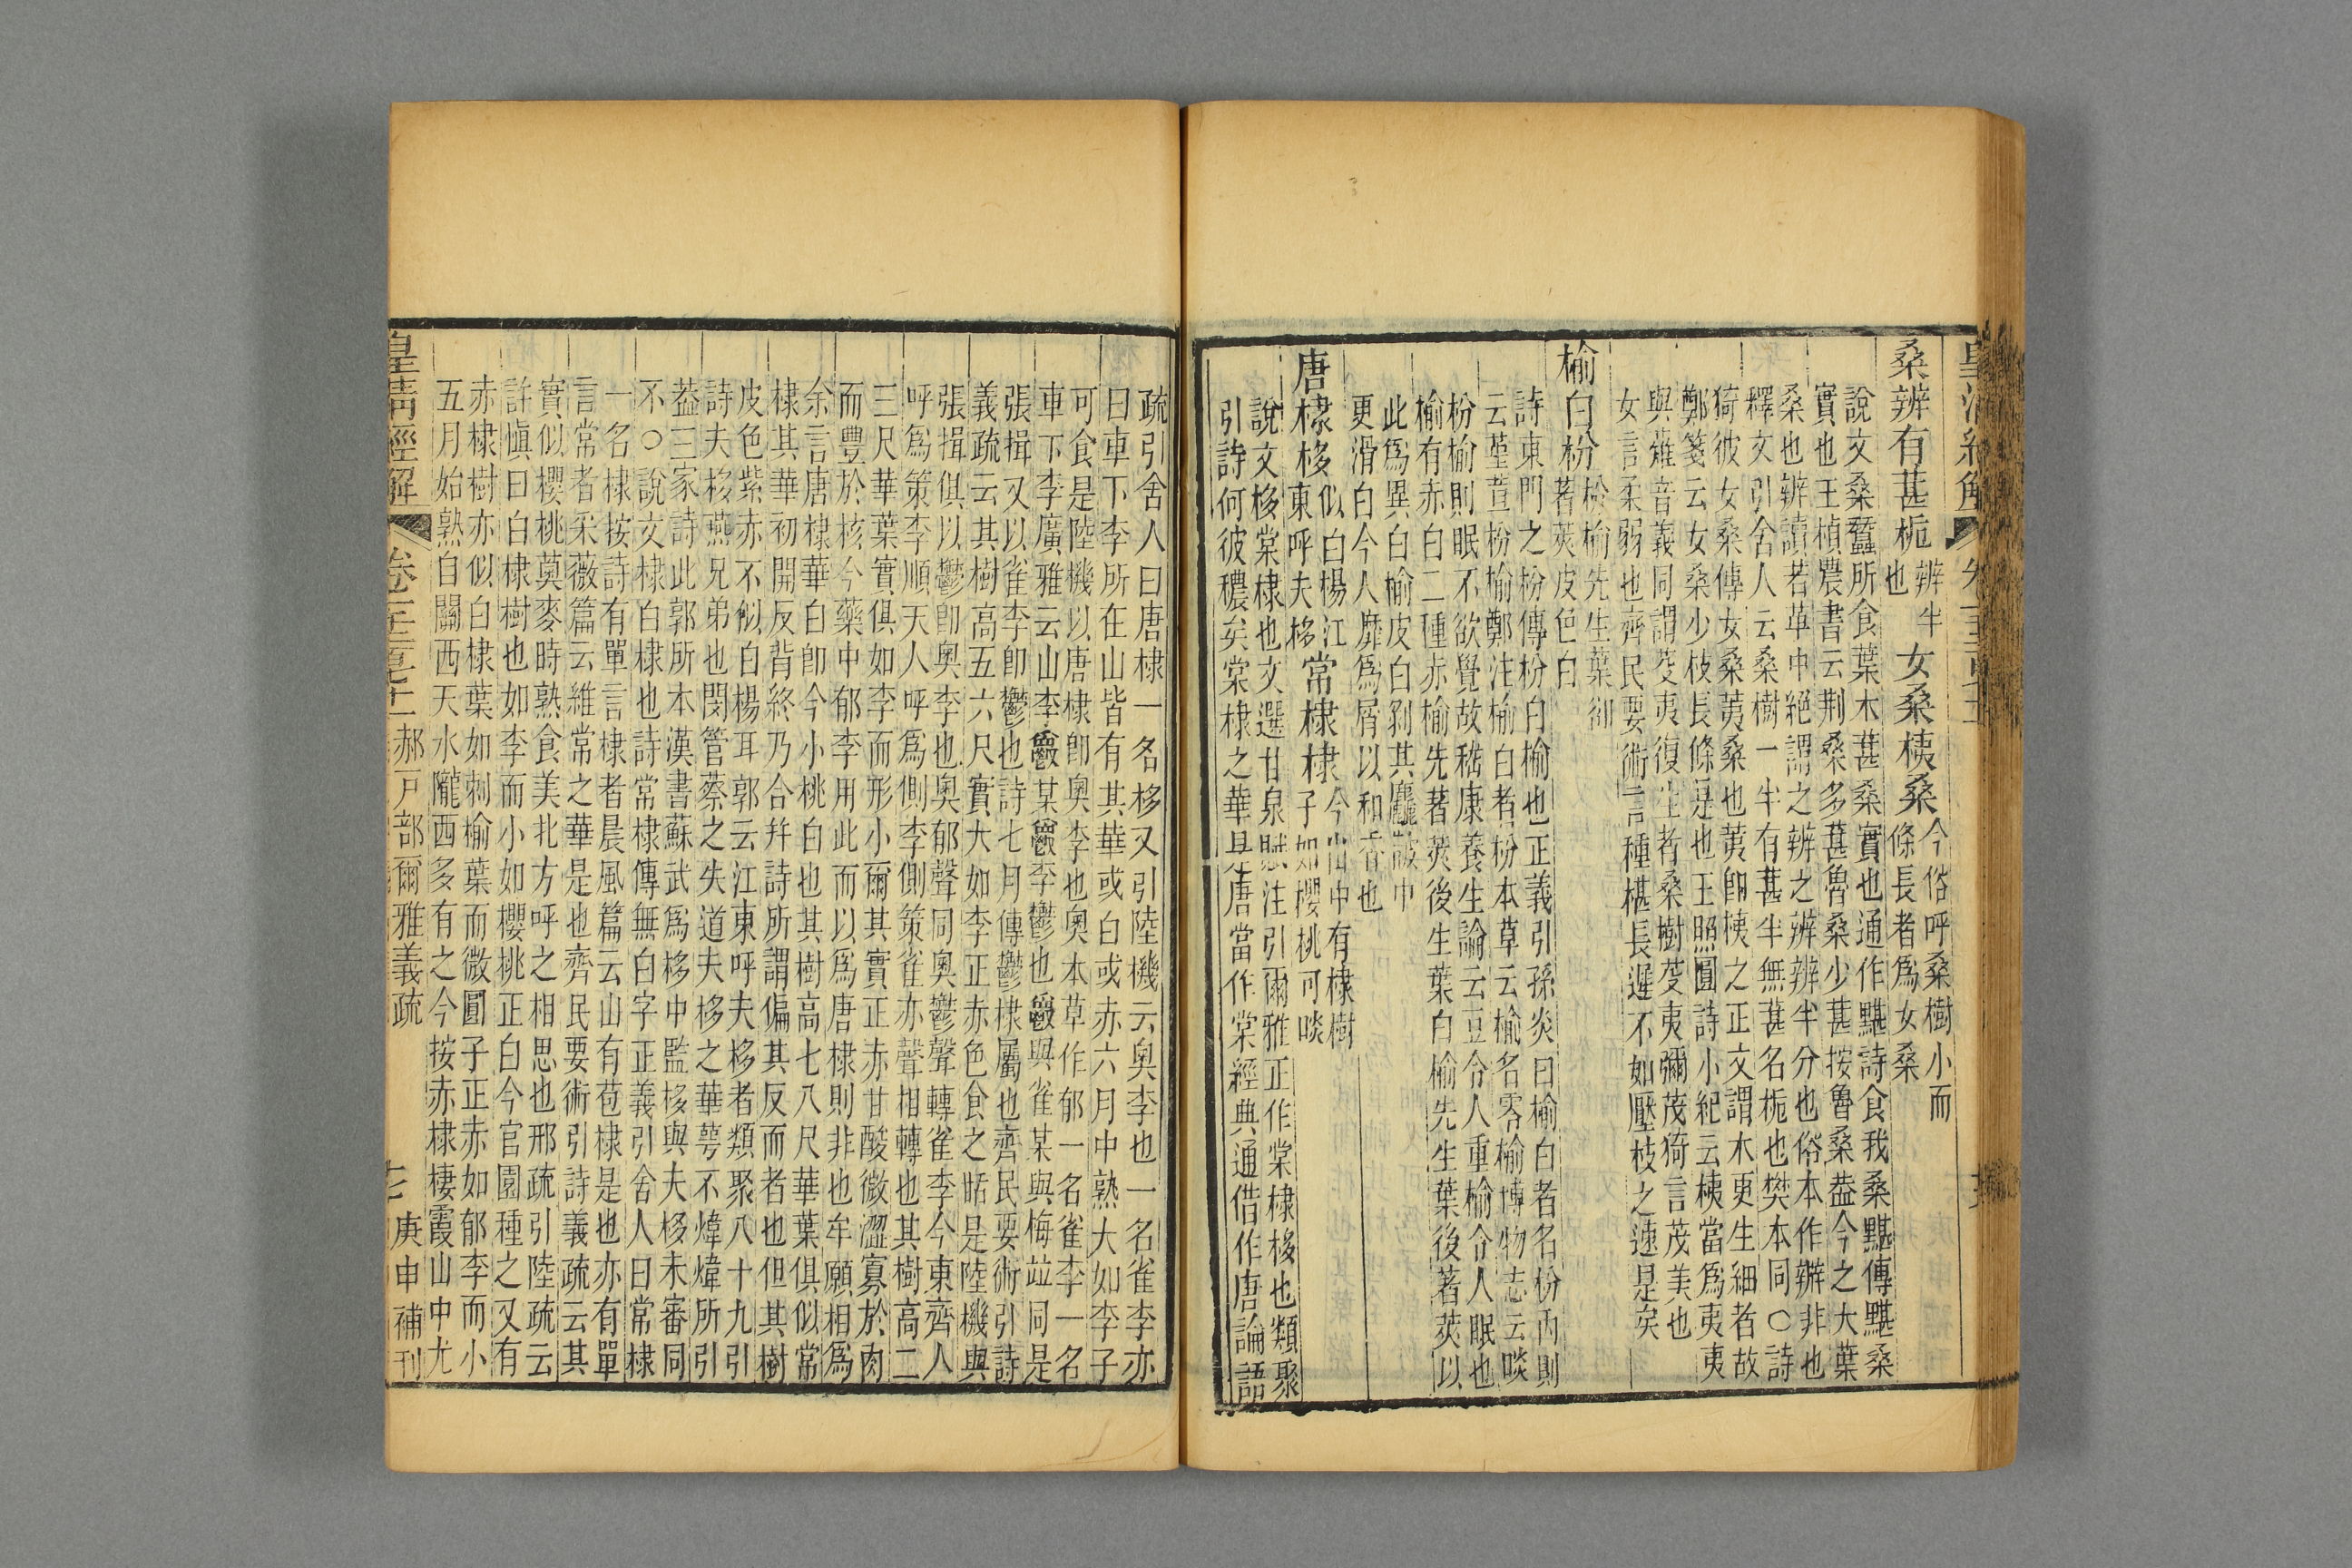 桑辨有葚梔辨半也女桑桋桑今俗呼桑樹小而條長者爲女桑
說文桑蠶所食葉木葚桑實也通作黮詩食我桑黮傳黮桑
實也王楨農書云荆桑多葚魯桑少葚按魯桑葢今之大葉
桑也辨讀若革中絕謂之辨之辨辨半分也俗本作辦非也
釋文引舍人云桑樹一半有葚半無葚名梔也樊本同○詩
猗彼女桑傳女桑荑桑也荑卽桋之正文謂木更生細者故
鄭箋云女桑少枝長條是也王照圓詩小紀云桋當爲夷夷
與薙音義同謂芟夷復生者桑樹芟夷彌茂猗言茂美也
女言柔弱也齊民要術言種椹長遲不如壓枝之速是矣
榆白枌枌榆先生葉卻著莢皮色白
詩東門之枌傳枌白榆也正義引孫炎曰榆白者名枌內則
云堇荁枌榆鄭注榆白者枌本草云榆名零榆博物志云啖
枌榆則眠不欲覺故嵇康養生論云豆令人重榆令人眠也
榆有赤白二種赤榆先著莢後生葉白榆先生葉後著莢以
此爲異白榆皮白剝其麤皵中
更滑白今人靡爲屑以和香也
唐棣栘似白楊江東呼夫栘常棣棣今山中有棣樹子如櫻桃可啖
說文栘棠棣也文選甘泉賦注引爾雅正作棠棣栘也類聚
引詩何彼穠矣棠棣之華是唐當作棠經典通借作唐論語
疏引舍人曰唐棣一名栘又引陸機云奥李也一名雀李亦
曰車下李所在山皆有其華或白或赤六月中熟大如李子
可食是陸機以唐棣卽奥李也奥本草作郁一名雀李一名
車下李廣雅云山李某李鬱也與雀某與梅竝同是
張揖又以雀李卽鬱也詩七月傳鬱棣屬也齊民要術引詩
義疏云其樹高五六尺實大如李正赤色食之甛是陸機與
張揖俱以鬱卽奥李也奥郁聲同奥鬱聲轉雀李今東齊人
呼爲策李順天人呼爲側李側策雀亦聲相轉也其樹高二
三尺華葉實俱如李而形小爾其實正赤甘酸微澀寡於肉
而豐於核今藥中郁李用此而以爲唐棣則非也牟願相爲
余言唐棣華白卽今小桃白也其樹高七八尺華葉俱似常
棣其華初開反背終乃合幷詩所謂偏其反而者也但其樹
皮色紫赤不似白楊耳郭云江東呼夫栘者類聚八十九引
詩夫栘燕兄弟也閔管蔡之失道夫栘之華萼不煒煒所引
葢三家詩此郭所本漢書蘇武爲栘中監栘與夫栘未審同
不○說文棣白棣也詩常棣傳無白字正義引舍人曰常棣
一名棣按詩有單言棣者晨風篇云山有苞棣是也亦有單
言常者采薇篇云維常之華是也齊民要術引詩義疏云其
實似櫻桃薁麥時熟食美北方呼之相思也邢疏引陸疏云
許愼曰白棣樹也如李而小如櫻桃正白今官園種之又有
赤棣樹亦似白棣葉如刺榆葉而微圓子正赤如郁李而小
五月始熟自關西天水隴西多有之今按赤棣棲霞山中尤
皇清經解 卷一千二百七十二 郝戸部爾雅義疏 七 庚申補刊